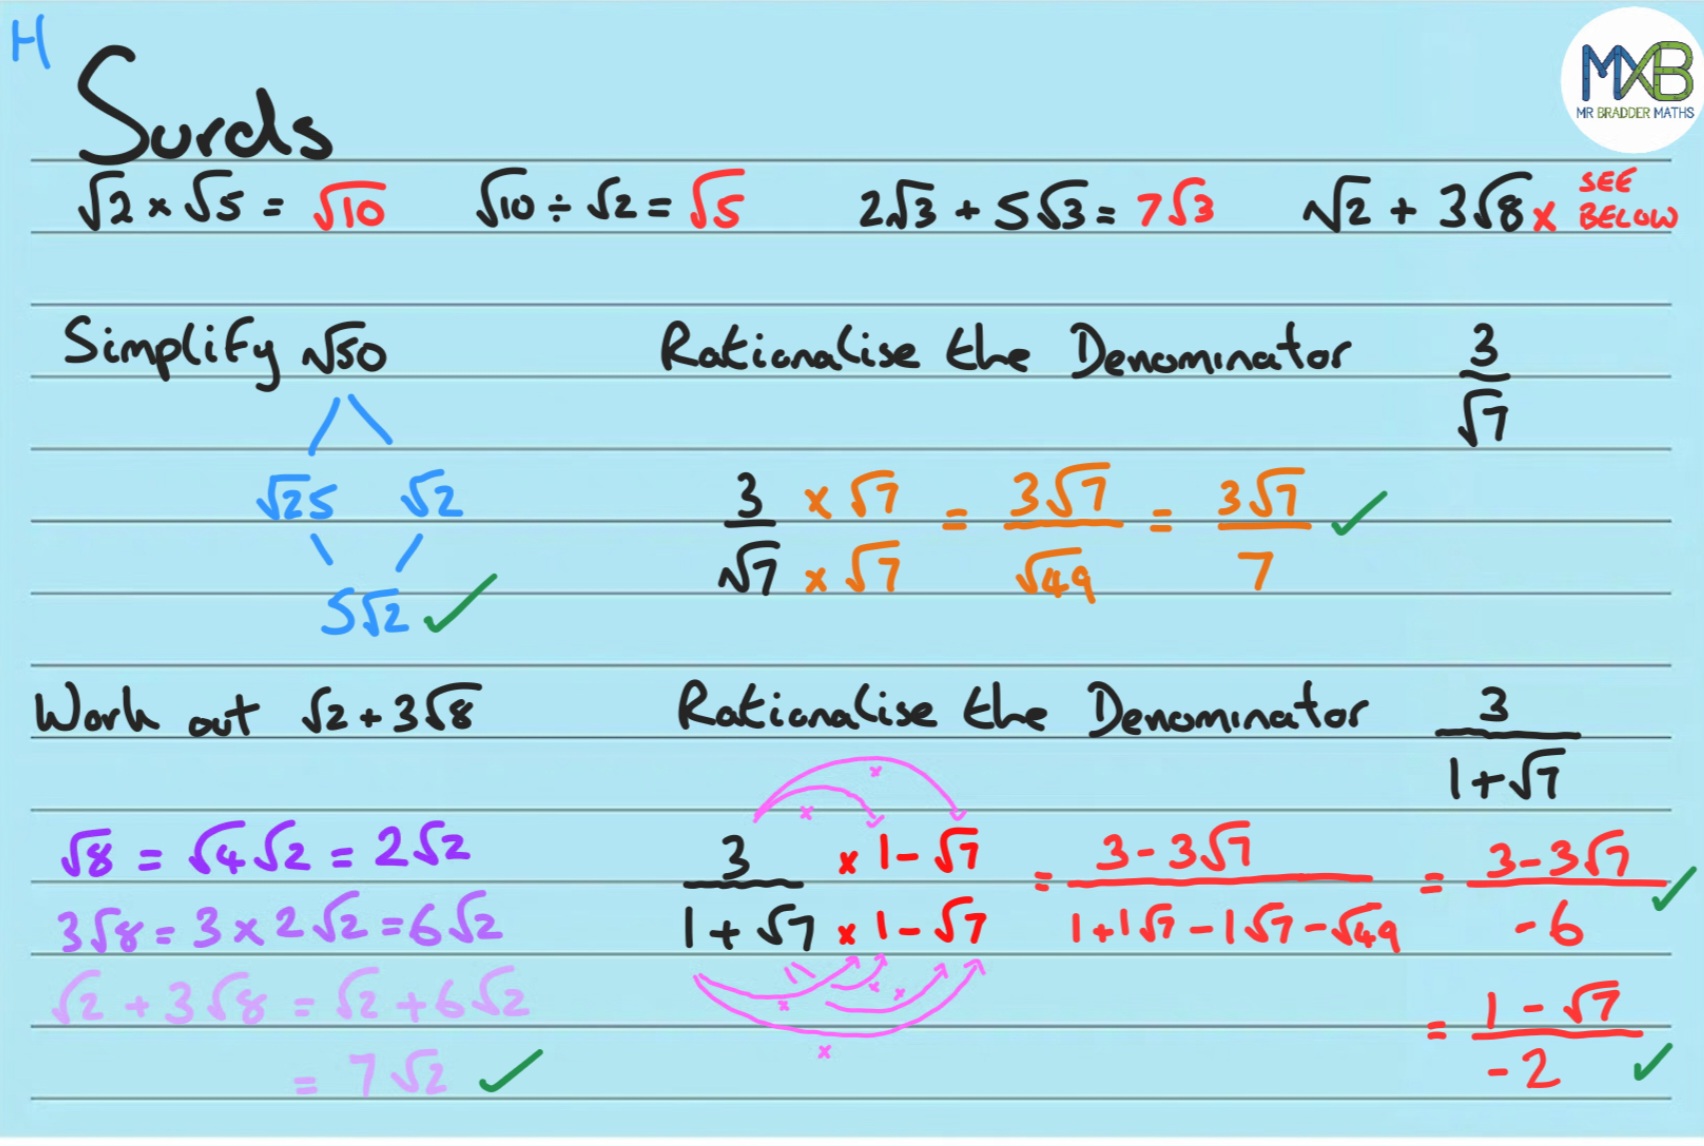 H
Surds
MXB
MR BRADDER MATHS
√2 × √5 = √10
√10 ÷ √2 = √5
2√3 + 5√3 = 7√3
√2 + 3√8 × SEE
BELOW
Simplify √50
√25 √2
5√2 ✓
Rationalise the Denominator 3/√7
3/√7 × √7/× √7 = 3√7/√49 = 3√7/7 ✓
Work out √2 + 3√8
√8 = √4√2 = 2√2
3√8 = 3 × 2√2 = 6√2
√2 + 3√8 = √2 + 6√2
= 7√2 ✓
Rationalise the Denominator 3/1+√7
× ×
3/1+√7 × 1-√7/× 1-√7 = 3-3√7/1+1√7-1√7-√49 = 3-3√7/-6 ✓
× × × ×
= 1-√7/-2 ✓